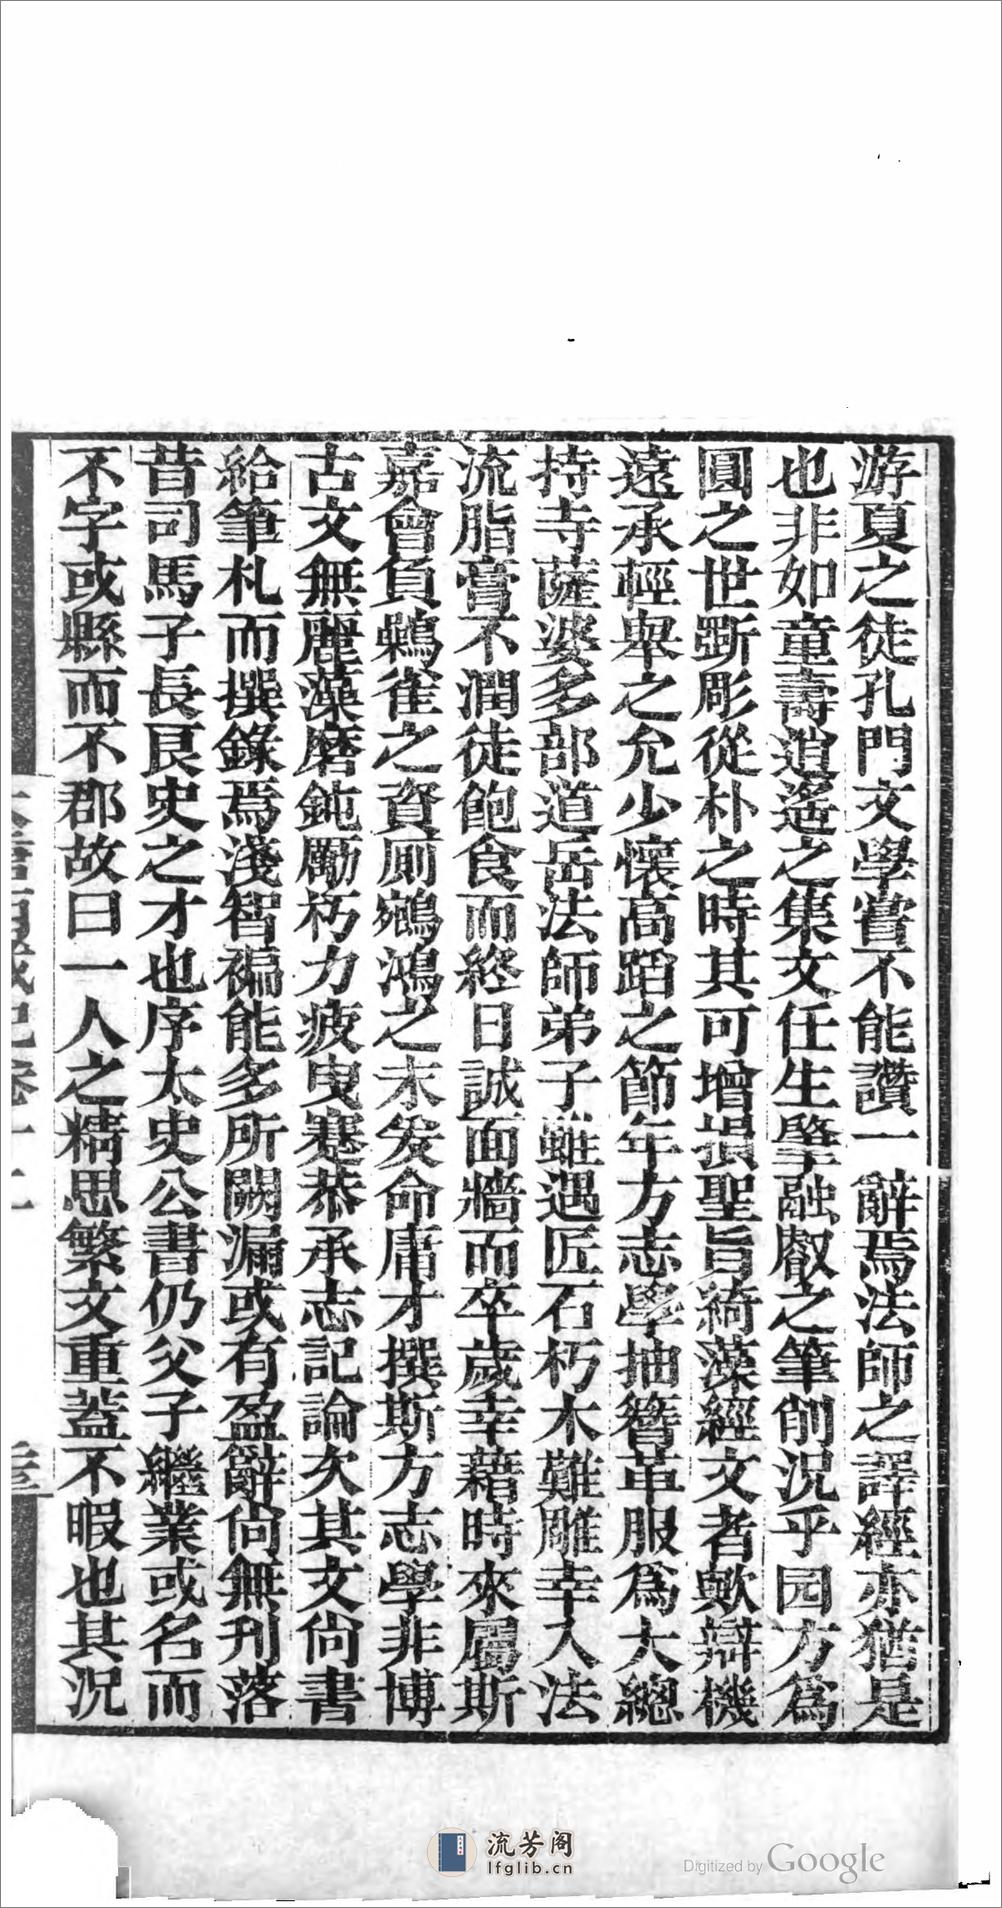 游夏之徒孔門文學嘗不能讚一辭焉法師之譯經亦猶是
也非如童壽逍遙之集文任生肇融叡之筆削況乎园方為
圓之世斲彫從朴之時其可增損聖旨綺藻經文者歟辯機
遠承輕舉之允少懷高蹈之節年方志學抽簪革服爲大總
持寺薩婆多部道岳法師弟子雖遇匠石朽木難雕幸入法
流脂膏不潤徒飽食而終日誠面牆而卒歲幸藉時來屬斯
嘉會負鷃雀之資廁鵷鴻之末爰命庸才撰斯方志學非博
古文無麗藻磨鈍勵朽力疲曳蹇恭承志記論次其文尙書
給筆札而撰錄焉淺智褊能多所闕漏或有盈辭尙無刋落
昔司馬子長良史之才也序太史公書仍父子繼業或名而
不字或縣而不郡故曰一人之精思繁文重蓋不暇也其況
大唐西域記卷十二
流芳阁
lfglib.cn
Digitized by Google